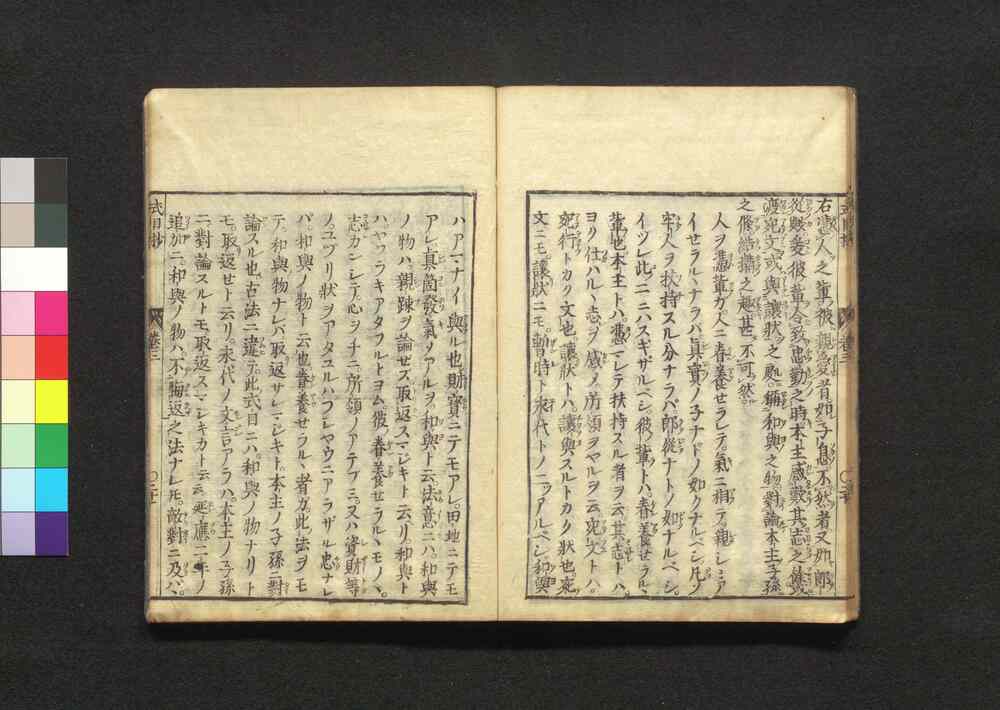 右憑人之輩被親愛者如子息不然者又如郎
從歟爰彼輩令致忠勤之時本主感歎其志之餘或
渡宛文或與讓狀之處稱和與之物對論本主子孫
之條結搆之趣甚不可然
人ヲ憑輩ガ人ニ眷養セラレテ氣ニ相テ親シミア
イせラルヽナラバ眞實ノ子ナドノ如クナルベシ凡ノ
牢人ヲ扶持スル分ナラバ郎從ナトノ如ナルベシ
イツレ此二ニハスギザルベシ彼輩トハ眷養せラルヽ
輩也本主トハ憑マレテ扶持スル者ヲ云其志トハ
ヨク仕ハルヽ志ヲ感メ所領ヲヤルヲ云宛文トハ
宛行トカク文也讓狀トハ讓與スルトカク狀也宛
文ニモ讓狀ニモ暫時ト永代トノ二ツアルベシ和與
ハアマナイ與ル也財寶ニテモアレ田地ニテモ
アレ眞箇發氣ノアルヲ和與ト云法意ニハ和與
ノ物ハ親踈ヲ論せス取返スマジキト云リ和與ト
ハヤワラキアタフルトヨム彼眷養せラルヽモノヽ
志カンシテ心ヲチニ所領ノアテブミ又ハ資財等
ノユヅリ狀ヲアタユルハフレヤウニアラザル忠ナレ
バ和與ノ物ト云也眷養せラルヽ者ガ此法ヲモ
テ和與物ナレバ取返サレマシキト本主ノ子孫ニ對
論スル也古法ニ違テ此式目ニハ和與ノ物ナリト
モ取返せト云リ永代ノ文言アラハ本主ノ子孫
ニ對論スルトモ取返スマシキカト云云延應二年ノ
追加ニ和與ノ物ハ不悔返之法ナレ𪜈敵對ニ及バヽ
式目抄
卷三